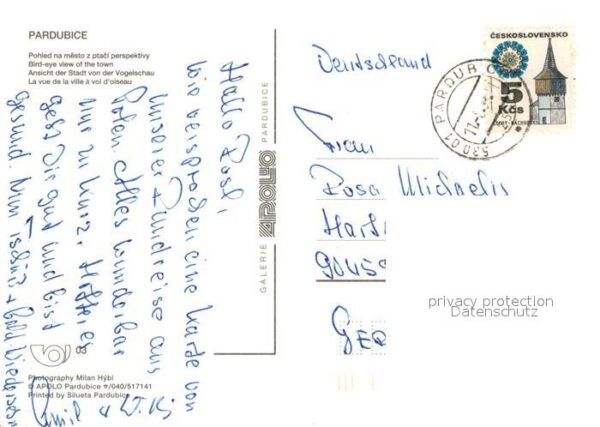 PARDUBICE
Pohled na město z ptačí perspektivy
Bird-eye view of the town
Ansicht der Stadt von der Vogelschau
La vue de la ville à vol d'oiseau
Hallo Rosl,
wie versprochen eine Karte von
unserer Rundreise aus
Polen. Alles wunderbar
nur zu kurz. Hoffe, es
geht Dir gut und bist
gesund. Bald Wiedersehen
Photography Milan Hýbl
© APOLO Pardubice ☎/040/517141
Printed by Silueta Pardubice
GALERIE APOLLO PARDUBICE
ČESKOSLOVENSKO
5 Kčs
53001 PARDUBICE
Deutschland
Frau
Rosa Michaelis
90459
privacy protection
Datenschutz